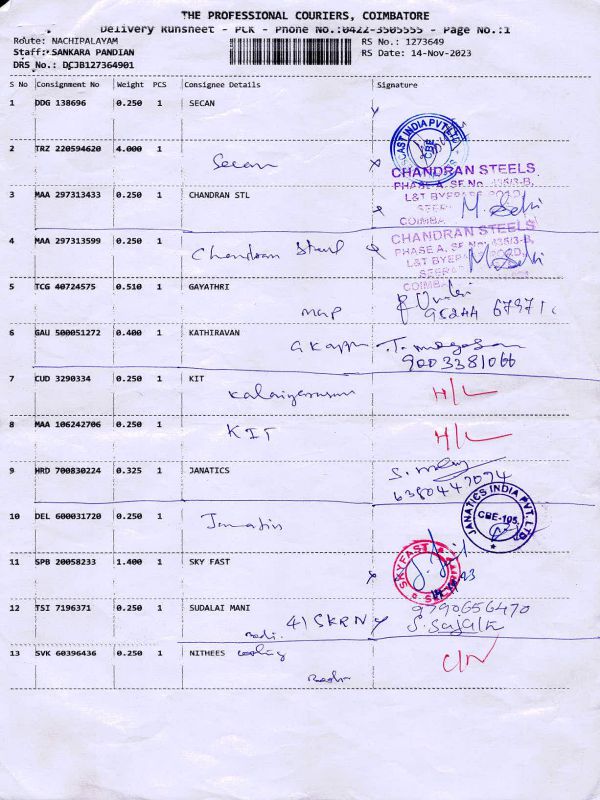 THE PROFESSIONAL COURIERS, COIMBATORE
Delivery Runsheet - PCR - Phone No.:0422-3505555 - Page No.:1
Route: NACHIPALAYAM
RS No.: 1273649
Staff: SANKARA PANDIAN
RS Date: 14-Nov-2023
DRS No.: DCJB127364901
S No Consignment No Weight PCS Consignee Details Signature
1 DDG 138696 0.250 1 SECAN
2 TRZ 220594620 4.000 1
Secan
CAST INDIA PVT LTD
CBE
CHANDRAN STEELS
PHASE A, SF No. 435/3-B,
3 MAA 297313433 0.250 1 CHANDRAN STL
L&T BYEPASS ROAD,
COIMBA
4 MAA 297313599 0.250 1
CHANDRAN STEELS
PHASE A, SF No. 435/3-B,
L&T BYEPASS ROAD,
Chandran Steel
COIMBA
5 TCG 40724575 0.510 1 GAYATHRI
map
6 GAU 500051272 0.400 1 KATHIRAVAN
9003381066
7 CUD 3290334 0.250 1 KIT
H/L
8 MAA 106242706 0.250 1
KIT
H/L
9 HRD 700830224 0.325 1 JANATICS
6380447074
10 DEL 600031720 0.250 1
Janatics
JANATICS INDIA PVT. LTD
CBE-105
11 SPB 20058233 1.400 1 SKY FAST
SKYFAST
12 TSI 7196371 0.250 1 SUDALAI MANI
41 SKRNY
9790656470
13 SVK 60396436 0.250 1 NITHEES